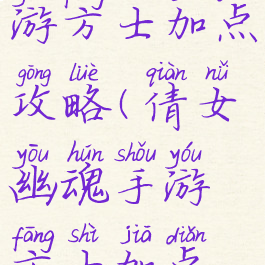 游方士加点
gōng lüè qiàn nǚ
攻略(倩女
yōu hún shǒu yóu
幽魂手游
fāng shì jiā diǎn
方士加点